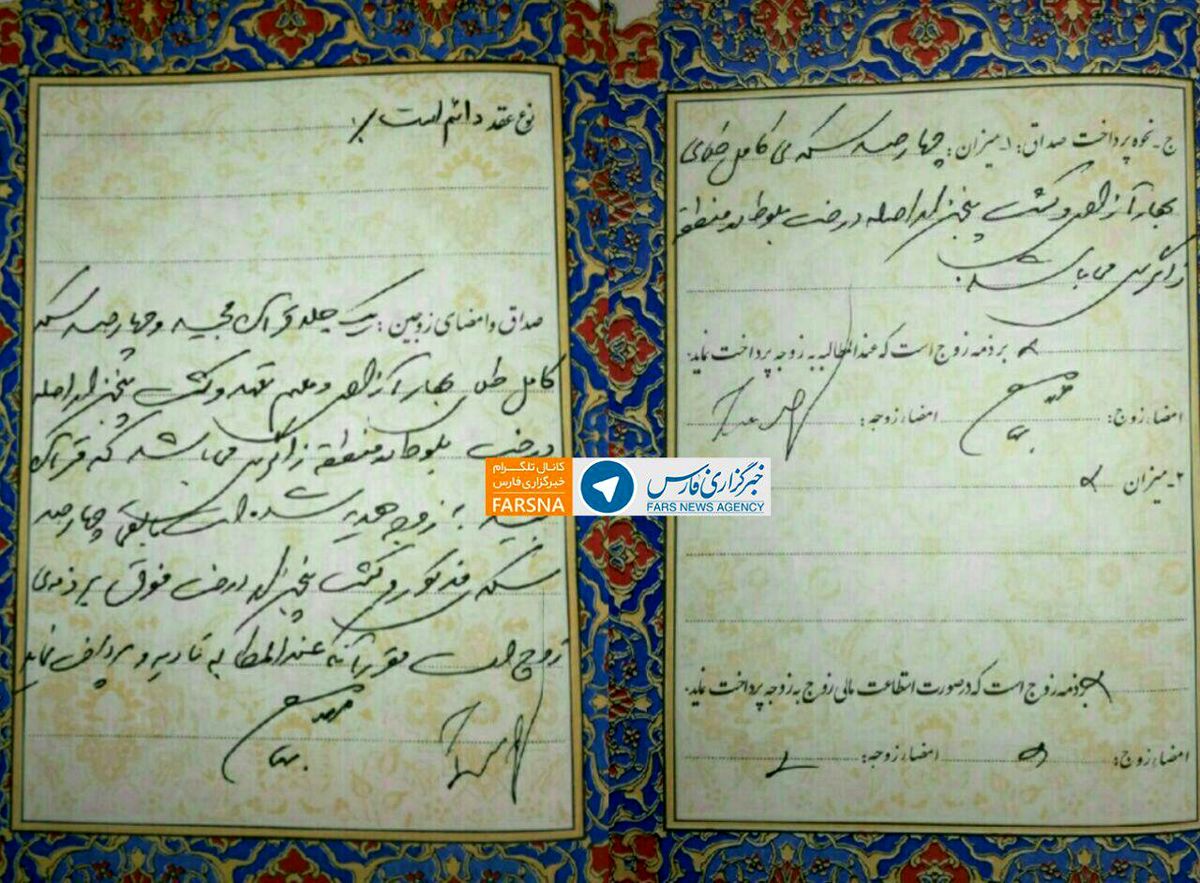 ج - نحوه پرداخت صداق: ۱- میزان: چهارصد سکه ی کامل طلای
بهار آزادی و کشت پنج هزار اصله درخت بلوط در منطقه
زاگرس می باشد
بر ذمه زوج است که عندالمطالبه به زوجه پرداخت نماید.
امضاء زوج: امضاء زوجه:
۲- میزان
بر ذمه زوج است که در صورت استطاعت مالی زوج به زوجه پرداخت نماید.
امضاء زوج: امضاء زوجه:
نوع عقد دائم است
صداق و امضای زوجین: یک جلد قرآن مجید و چهارصد سکه
کامل طلای بهار آزادی و تعهد و کشت پنج هزار اصله
درخت بلوط در منطقه زاگرس می باشد که قرآن
مجید به زوجه هدیه شده است مابقی چهارصد
سکه ی مذکور و کشت پنج هزار درخت فوق بر ذمه ی
زوج است عندالمطالبه تادیه و پرداخت نماید
کانال تلگرام
خبرگزاری فارس
FARSNA
خبرگزاری فارس
FARS NEWS AGENCY